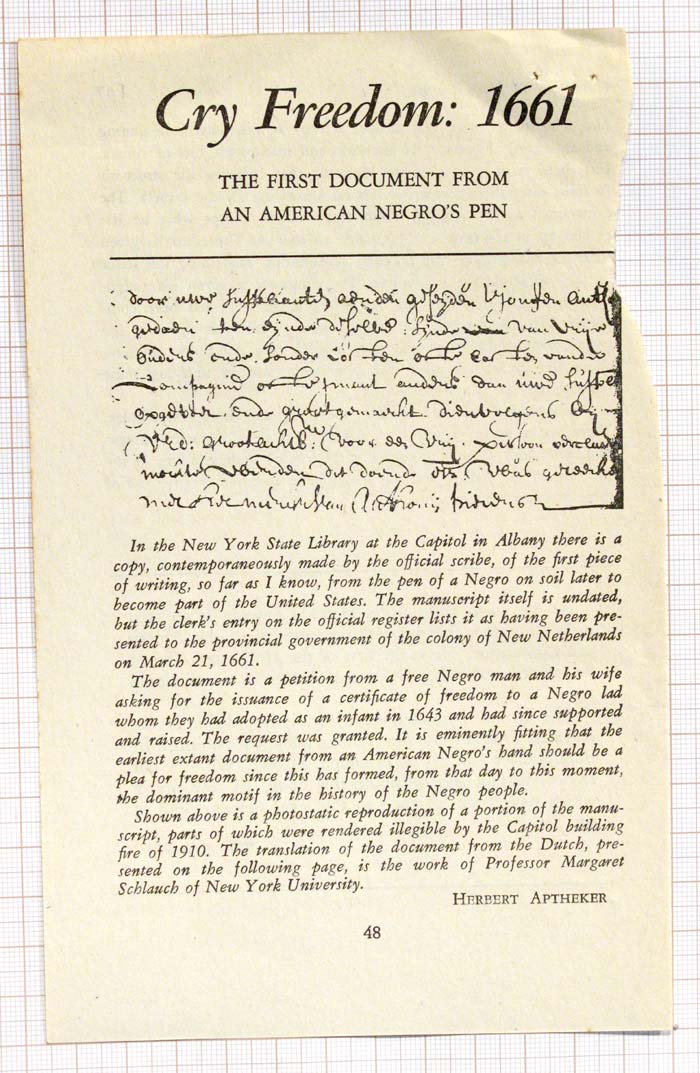 Cry Freedom: 1661
THE FIRST DOCUMENT FROM
AN AMERICAN NEGRO'S PEN
door uwe Supplianten aen den geseyden Jongen
gedaen ten eynde deselve synde van vrije
Ouders ende sonder costen ofte lasten vande
Compagnie ofte ymant anders dan uwe
ende groot gemaeckt dienvolgens
voor een vrij persoon
mochte werden dit doende
met het merck van
In the New York State Library at the Capitol in Albany there is a
copy, contemporaneously made by the official scribe, of the first piece
of writing, so far as I know, from the pen of a Negro on soil later to
become part of the United States. The manuscript itself is undated,
but the clerk's entry on the official register lists it as having been pre-
sented to the provincial government of the colony of New Netherlands
on March 21, 1661.
The document is a petition from a free Negro man and his wife
asking for the issuance of a certificate of freedom to a Negro lad
whom they had adopted as an infant in 1643 and had since supported
and raised. The request was granted. It is eminently fitting that the
earliest extant document from an American Negro's hand should be a
plea for freedom since this has formed, from that day to this moment,
the dominant motif in the history of the Negro people.
Shown above is a photostatic reproduction of a portion of the manu-
script, parts of which were rendered illegible by the Capitol building
fire of 1910. The translation of the document from the Dutch, pre-
sented on the following page, is the work of Professor Margaret
Schlauch of New York University.
HERBERT APTHEKER
48